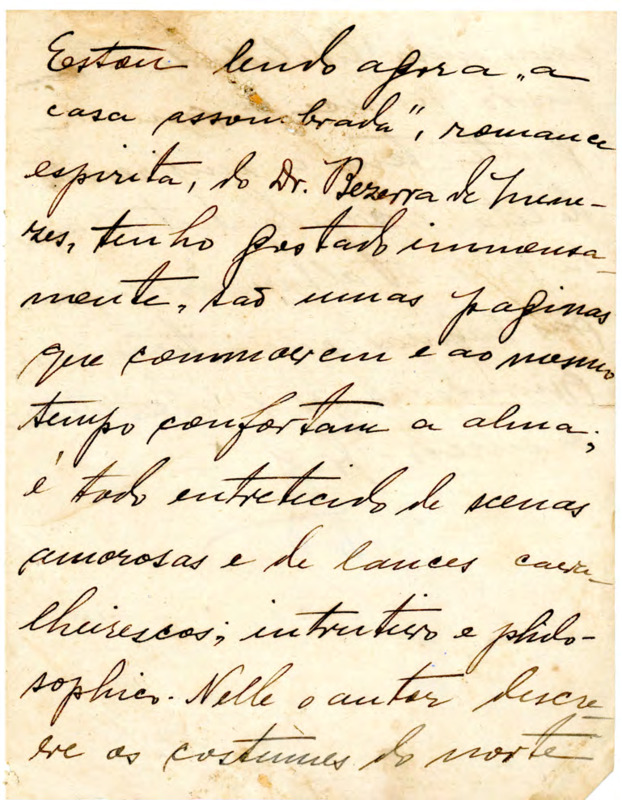 Estou lendo agora „a
casa assombrada", romance
espirita, do Dr. Bezerra de Mene-
zes, tenho gostado immensa-
mente, são umas paginas
que commovem e ao mesmo
tempo confortam a alma;
é todo entretecido de scenas
amorosas e de lances cava-
lheirescos; intrutivo e philo-
sophico. Nelle o autor descre-
ve os costumes do norte